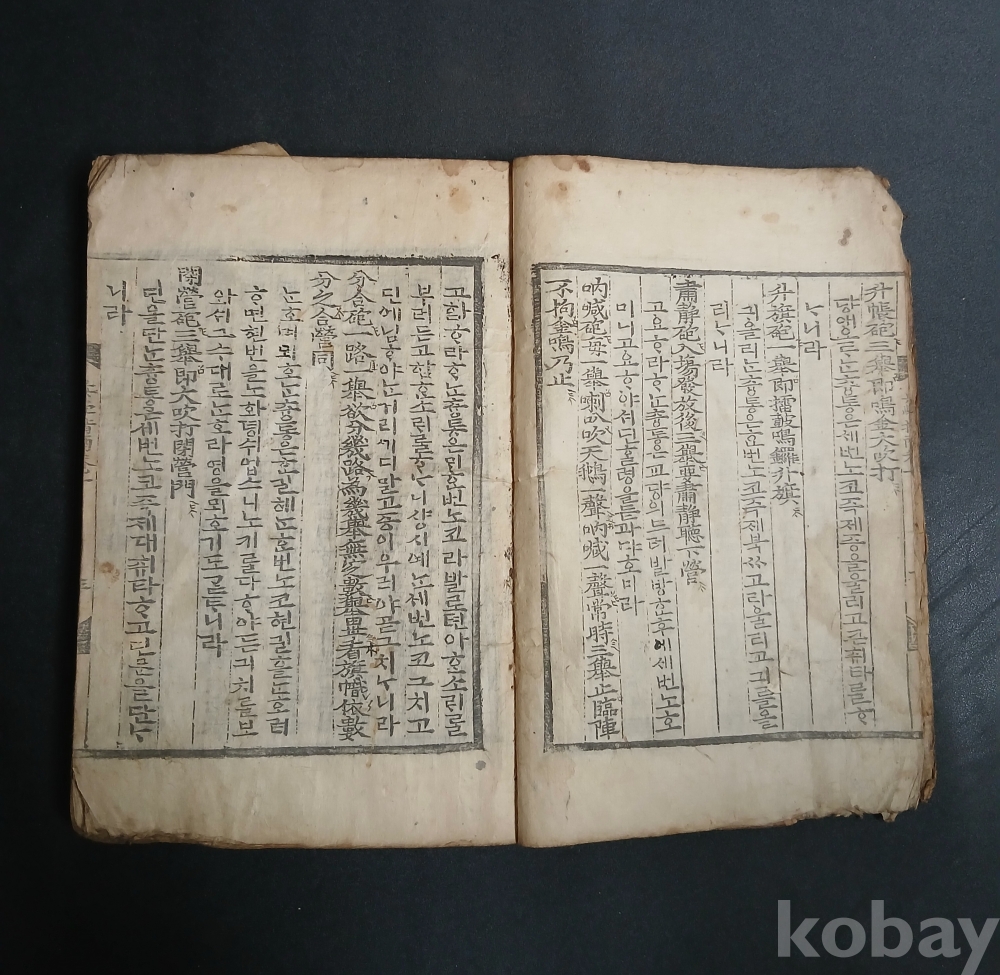 升帳砲三擧即鳴金大吹打
당앵으로ᄂᆞᆫ춍통은세번노코즉제증을울리고큰취타를ᄒᆞ
ᄂᆞ니라
升旗砲一擧即擂鼓鳴鑼升旗
긔올리ᄂᆞᆫ춍통은ᄒᆞᆫ번노코즉제북 고라울리고긔를올
리ᄂᆞ니라
肅靜砲入場發放後三擧要肅靜聽下營
고요ᄒᆞ라ᄒᆞᄂᆞᆫ춍통은교댱의드러발방ᄒᆞᆫ후에세번노호
미니고요ᄒᆞ야셔딘ᄒᆞᆯ령을듣과댜ᄒᆞ미라
呐喊砲每一擧喇叭吹天鵝一聲呐喊一聲常時三擧止臨陣
不拘金鳴乃止
고함ᄒᆞ라ᄒᆞᄂᆞᆫ춍통은ᄆᆡᄒᆞᆫ번노코라발로텬아ᄒᆞᆫ소ᄅᆡ를
부러든고함ᄒᆞᆫ소ᄅᆡ를ᄒᆞᄂᆞ니샹시예ᄂᆞᆫ세번노코그치고
딘에님ᄒᆞ야ᄂᆞᆫ거리ᄭᅵ디말고증이우러야곧그치ᄂᆞ니라
分合砲一路一擧欲分幾路為幾擧無定數擧畢看旗幟依數
分之合營同
ᄂᆞᆫ호며뫼호ᄂᆞᆫ춍통은ᄒᆞᆫ길헤ᄂᆞᆫᄒᆞᆫ번노코현길흘ᄂᆞᆫ호려
ᄒᆞ면현번을노화뎡쉬업스니노키를다ᄒᆞ야든긔치를보
와셔그수대로ᄂᆞᆫ호라영을뫼호기도ᄀᆞᆮᄐᆞ니라
閉營砲三擧即大吹打閉營門
딘을단ᄂᆞᆫ춍통은세번노코즉제대취타ᄒᆞ고딘문을단ᄂᆞ
니라
kobay